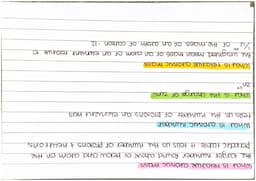 What is
the larger number found above or below and atom on the
periodic table it tells us the number of protons + neutrons
What is atomic number
tells us the number of protons an element has
What is the charge of zinc
Zn²⁺
What is relative atomic mass
the weighted mean mass of an atom of an element relative to
1/12 of the mass of an atom of carbon - 12